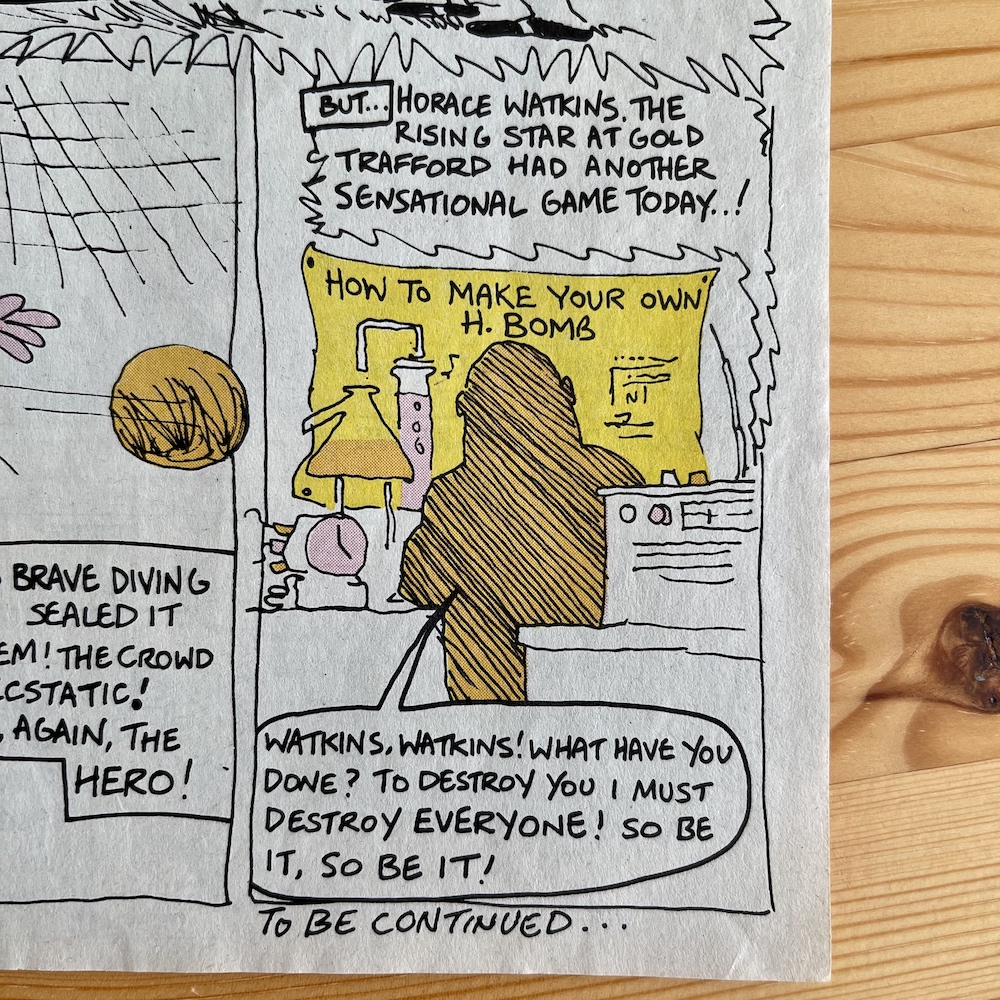 BRAVE DIVING
SEALED IT
EM! THE CROWD
ECSTATIC!
, AGAIN, THE
HERO!
BUT... HORACE WATKINS, THE
RISING STAR AT GOLD
TRAFFORD HAD ANOTHER
SENSATIONAL GAME TODAY..!
HOW TO MAKE YOUR OWN
H. BOMB
WATKINS, WATKINS! WHAT HAVE YOU
DONE? TO DESTROY YOU I MUST
DESTROY EVERYONE! SO BE
IT, SO BE IT!
TO BE CONTINUED...